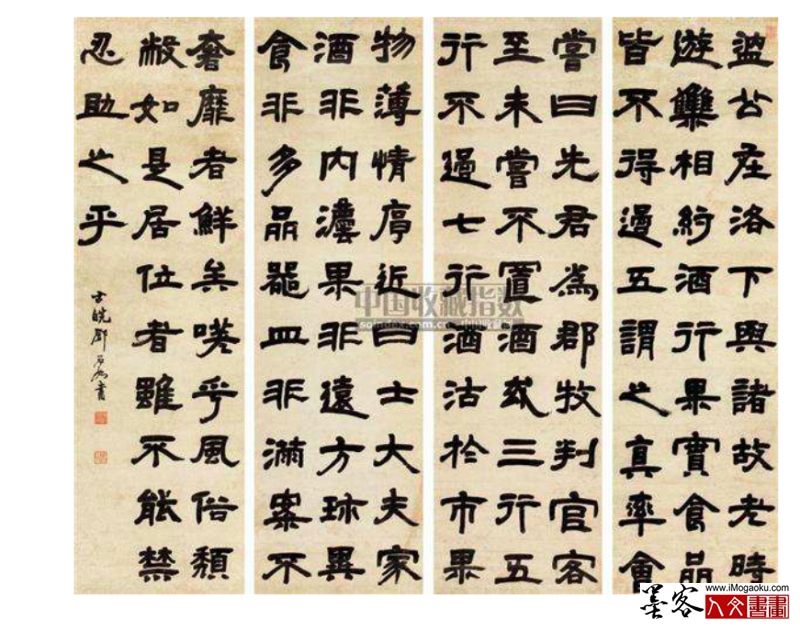 温公在洛下與諸故老時
遊集相約酒行果實食品
皆不得過五謂之真率會
嘗曰先君為郡牧判官客
至未嘗不置酒或三行五
行不過七行酒沽於市果
物薄情厚近日士大夫家
酒非內灋果非遠方珎異
食非多品器皿非滿案不
奢靡者鮮矣嗟乎風俗頹
敝如是居位者雖不能禁
忍助之乎
古皖鄧石如書
中国收藏指数
墨客
www.iMogaoku.com
人文書畫